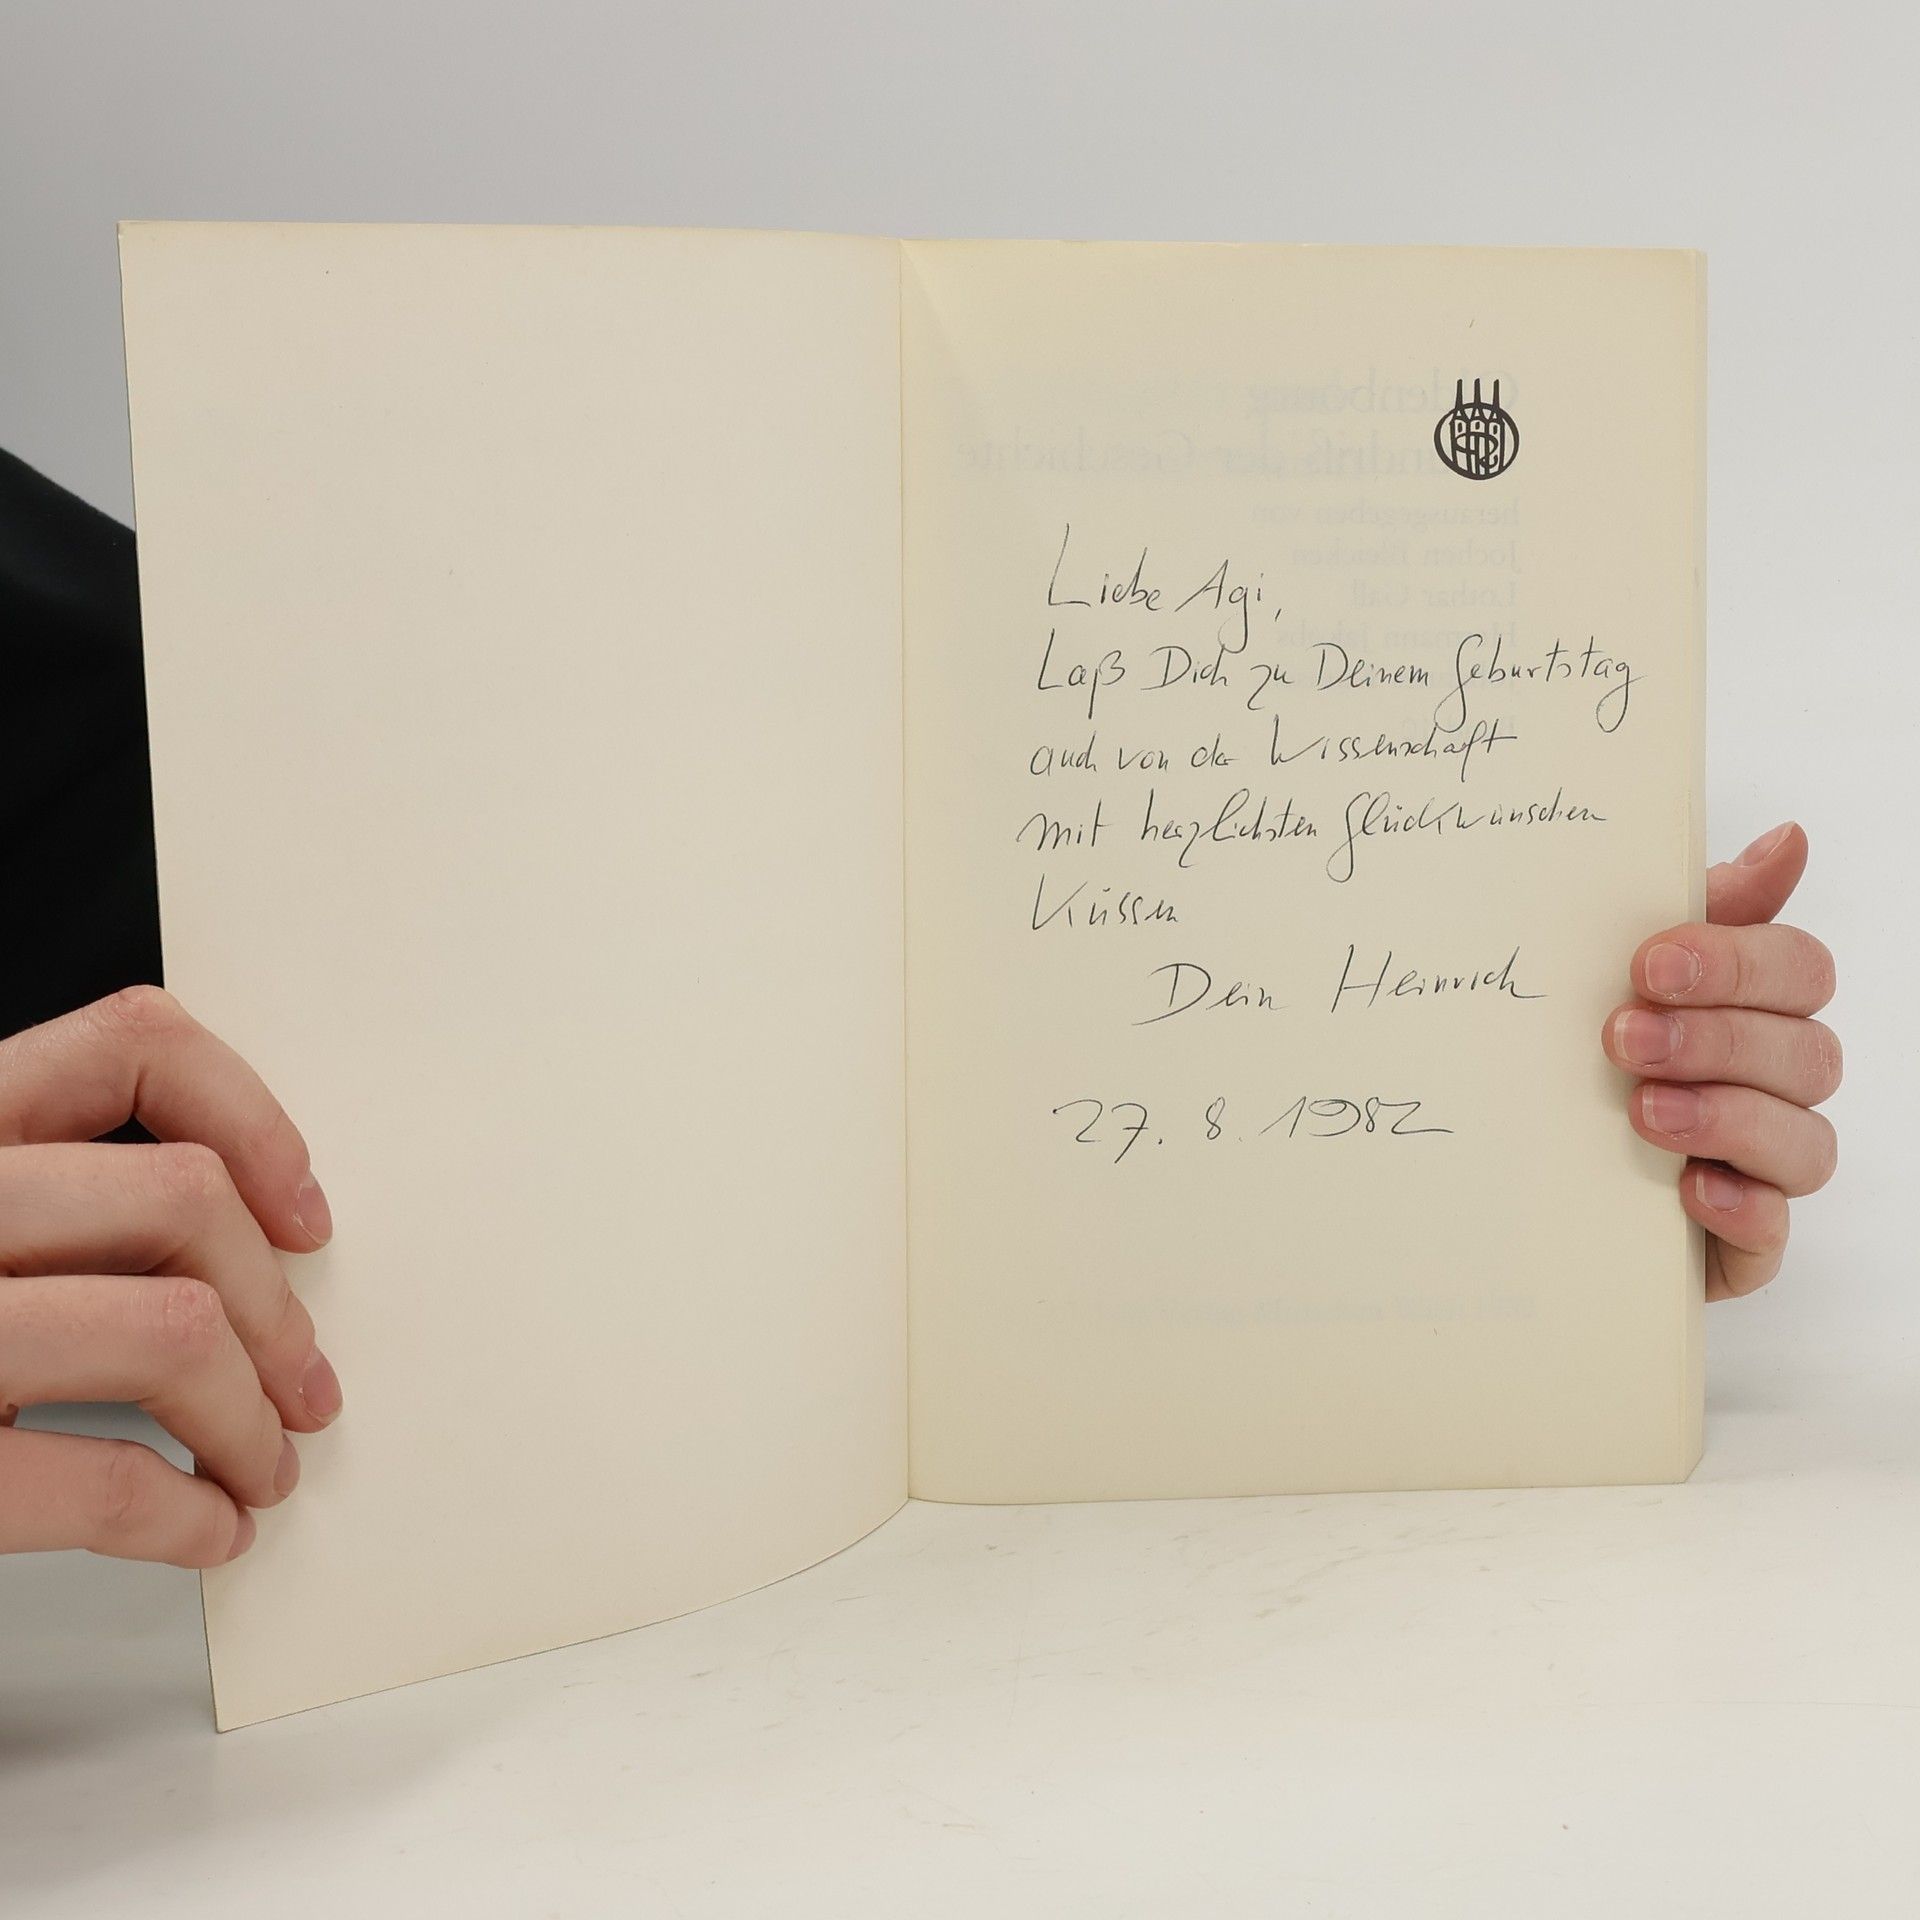 Liebe Agi,
Laß Dich zu Deinem Geburtstag
auch von der Wissenschaft
mit herzlichsten Glückwünschen
Küssen
Dein Heinrich
27. 8. 1982
Oldenbourg
Grundriß der Geschichte
herausgegeben von
Jochen Bleicken
Lothar Gall
Hermann Jakobs